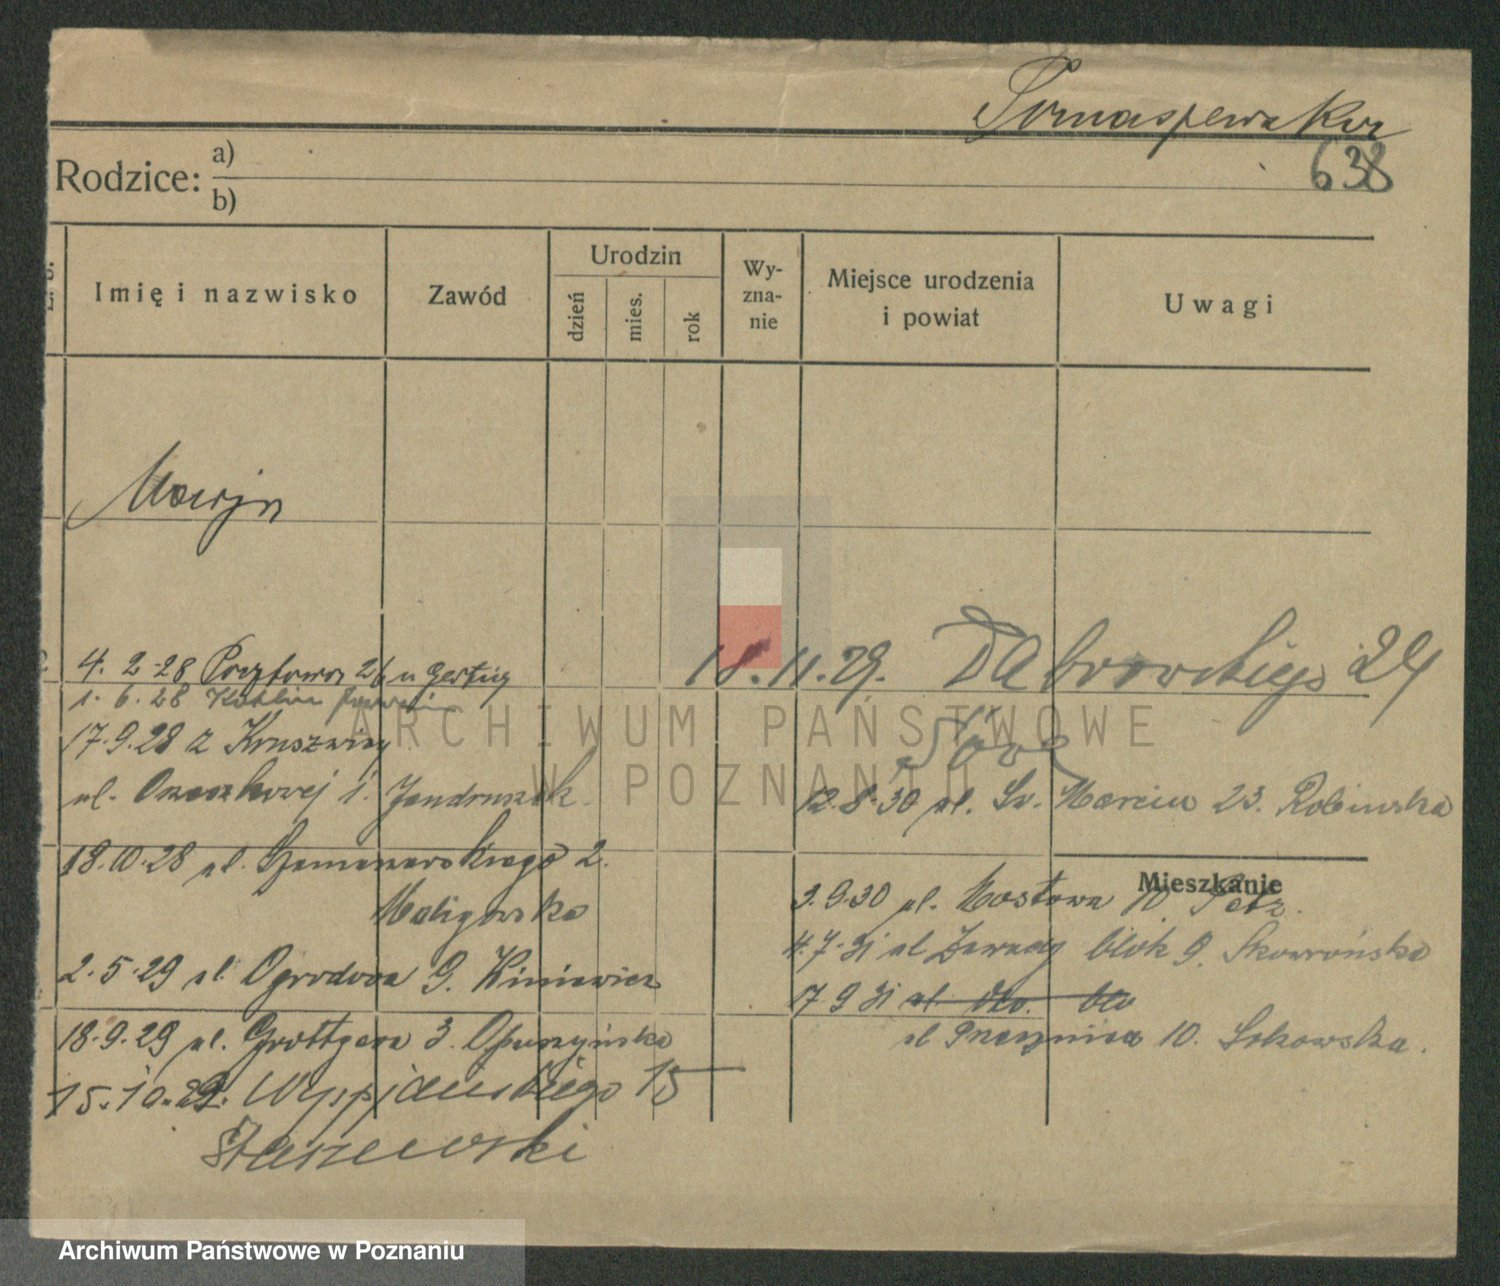 Tomaszewska
638
Rodzice: a)
b)
Imię i nazwisko
Zawód
Urodzin
dzień
mies.
rok
Wy-
zna-
nie
Miejsce urodzenia
i powiat
Uwagi
Maryja
4. 2 28 Pocztowa 26 u
1. 6. 28
17.9.28 z Kruszwicy
ul. Orzeszkowej 1. Jendruszek.
18.10.28 ul. 2.
Maligowska
2.5.29 ul. Ogrodowa 9. Kiniewicz
18.9.29 ul. Grottgera 3. Opuszyńska
15.10.29. Wyspjańskiego 15
Staszewski
18.11.29. Dąbrowskiego 24
12.8.30 ul. Św. Marcin 23. Robińska
Mieszkanie
3.9.30 ul. Mostowa 10.
4.7.31 ul blok 9. Skowrońska
17 9 31
ul 10. Sokowska.
ARCHIWUM PAŃSTWOWE
W POZNANIU
Archiwum Państwowe w Poznaniu